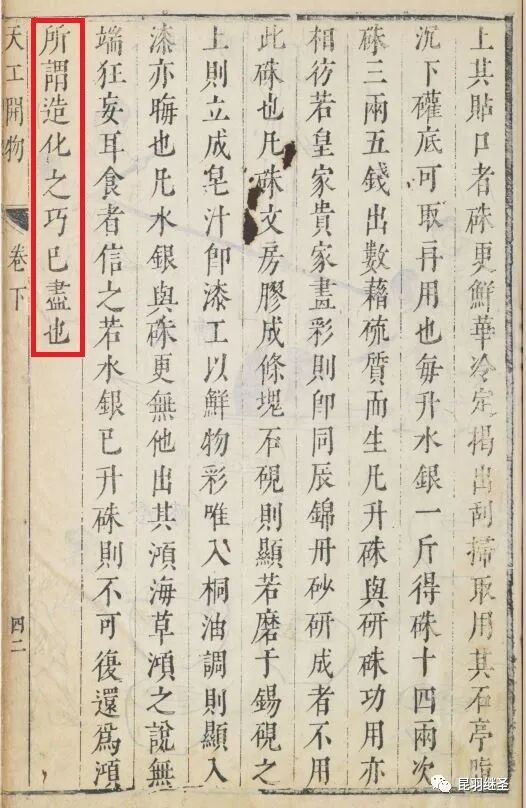 上其貼口者硃更鮮華冷定揭出刮掃取用其石亭脂
沉下礶底可取再用也每升水銀一斤得硃十四兩次
硃三兩五錢出數藉硫質而生凡升硃與研硃功用亦
相彷若皇家貴家畫彩則卽同辰錦丹砂研成者不用
此硃也凡硃文房膠成條塊石硯則顯若磨于錫硯之
上則立成皂汁卽漆工以鮮物彩唯入桐油調則顯入
漆亦晦也凡水銀與硃更無他出其澒海草澒之說無
端狂妄耳食者信之若水銀已升硃則不可復還爲澒
所謂造化之巧已盡也
天工開物 卷下 四二
昆羽继圣